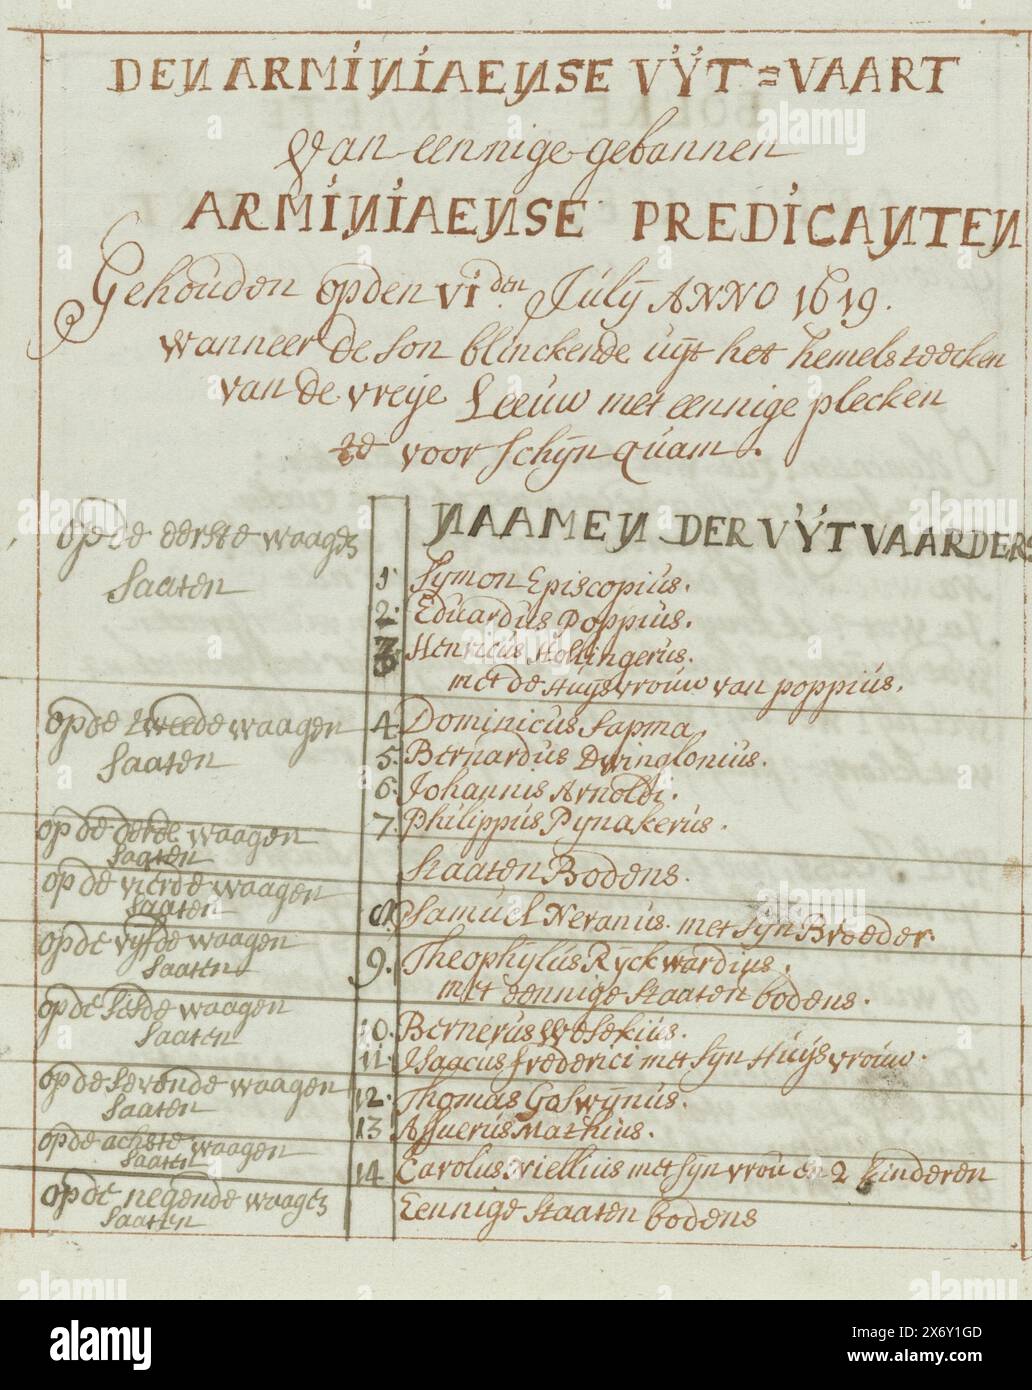 DEN ARMINIAENSE VŸT=VAART
van eennige gebannen
ARMINIAENSE PREDICANTEN
Gehouden op den VI den July ANNO 1619.
wanneer de son blinckende uÿt het hemels teecken
van de vreije Leeuw met eennige plecken
te voorschijn quam.
NAAMEN DER VŸTVAARDERS
op de eerste waagen
saaten
1 Symon Episcopius.
2. Eduardus Poppius.
3 Henricus Hollingerus.
met de Huÿsvrouw van poppius.
op de tweede waagen
saaten
4 Dominicus Sapma
5. Bernardus Dwinglonius.
6. Johannis Arnoldi.
7. Philippus Pynakerus.
op de derde waagen
saaten
Staaten Bodens.
op de vierde waagen
saaten
8. Samuel Neranus. met syn Broeder.
op de vyfde waagen
saaten
9. Theophylus Ryckwardius.
met eennige staaten bodens.
op de sesde waagen
saaten
10. Bernerus Wesekius.
11. Isaacus frederici met syn Huÿsvrouw.
op de sevende waagen
saaten
12. Thomas Goswynus.
13 Assuerus Mathius.
op de achste waagen
saaten
14 Carolus niellius met syn vrou en 2 kinderen
op de negende waagen
saaten
Eennige staaten bodens
alamy
Image ID: 2X6Y1GD
www.alamy.com